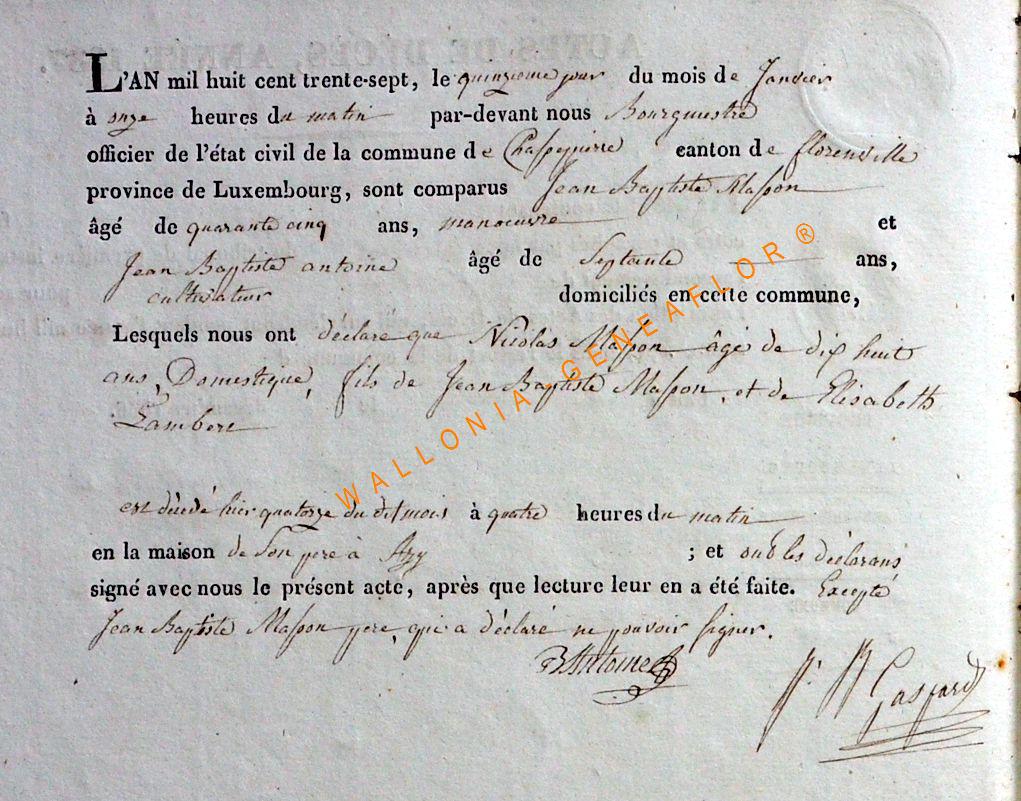 L'AN mil huit cent trente-sept, le quinzieme jour du mois de Janvier
à onze heures du matin par-devant nous Bourgmestre
officier de l'état civil de la commune de Chassepierre canton de florenville
province de Luxembourg, sont comparus Jean Baptiste Masson
âgé de quarante cinq ans, manoeuvre et
Jean Baptiste antoine âgé de Septante ans,
cultivateur domiciliés en cette commune,
Lesquels nous ont déclaré que Nicolas Masson âgé de dix huit
ans, Domestique, fils de Jean Baptiste Masson, et de Elisabeth
Lambert
est décédé hier quatorze du dit mois à quatre heures du matin
en la maison de Son pere à Azy ; et ont les déclarans
signé avec nous le présent acte, après que lecture leur en a été faite. Excepté
Jean Baptiste Masson pere, qui a déclaré ne pouvoir signer.
Antoine
Gaspard
WALLONIA GENEAFLOR ®